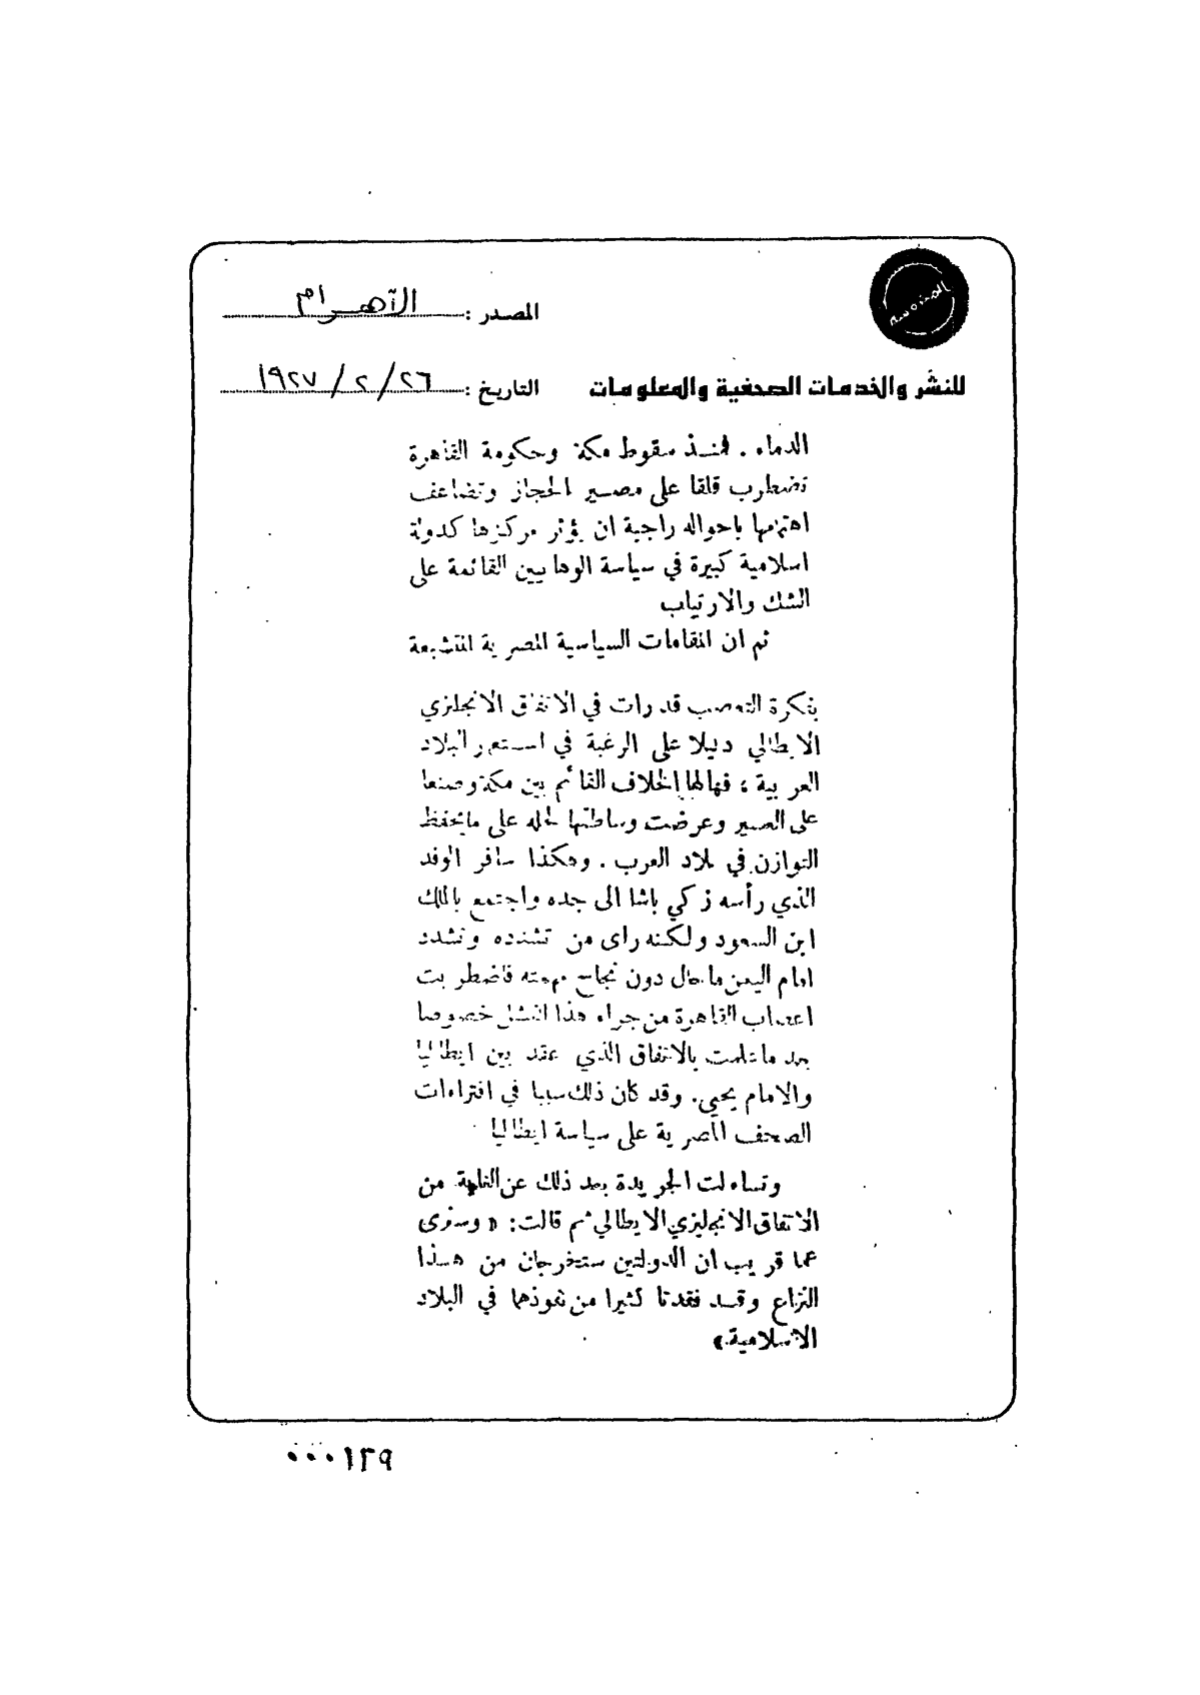 المصدر : الأهرام
للنشر والخدمات الصحفية والمعلومات
التاريخ : ٢٦/٢/١٩٢٧
الدماء . فمنذ سقوط مكة وحكومة القاهرة
تضطرب قلقا على مصير الحجاز وتضاعف
اهتمامها باحواله راجية ان يؤثر مركزها كدولة
اسلامية كبيرة في سياسة الوهابيين القائمة على
الشك والارتياب
ثم ان المقامات السياسية المصرية المتشبعة
بفكرة التعصب قد رات في الاتفاق الانجليزي
الايطالي دليلا على الرغبة في استعمار البلاد
العربية ، فهالها الخلاف القائم بين مكة وصنعا
على العسير وعرضت وساطتها لحله على مايحفظ
التوازن في بلاد العرب . وهكذا سافر الوفد
الذي رأسه زكي باشا الى جده واجتمع بالملك
ابن السعود ولكنه راى من تشدده وتشدد
امام اليمن ماحال دون نجاح مهمته فاضطربت
اعصاب القاهرة من جراء هذا الفشل خصوصا
بعد ماعلمت بالاتفاق الذي عقد بين ايطاليا
والامام يحيى. وقد كان ذلك سببا في افتراءات
الصحف المصرية على سياسة ايطاليا
وتساءلت الجريدة بعد ذلك عن الغاية من
الاتفاق الانجليزي الايطالي ثم قالت: « وسنرى
عما قريب ان الدولتين ستخرجان من هذا
النزاع وقد فقدتا كثيرا من نفوذهما في البلاد
الاسلامية»
٠٠٠١٢٩